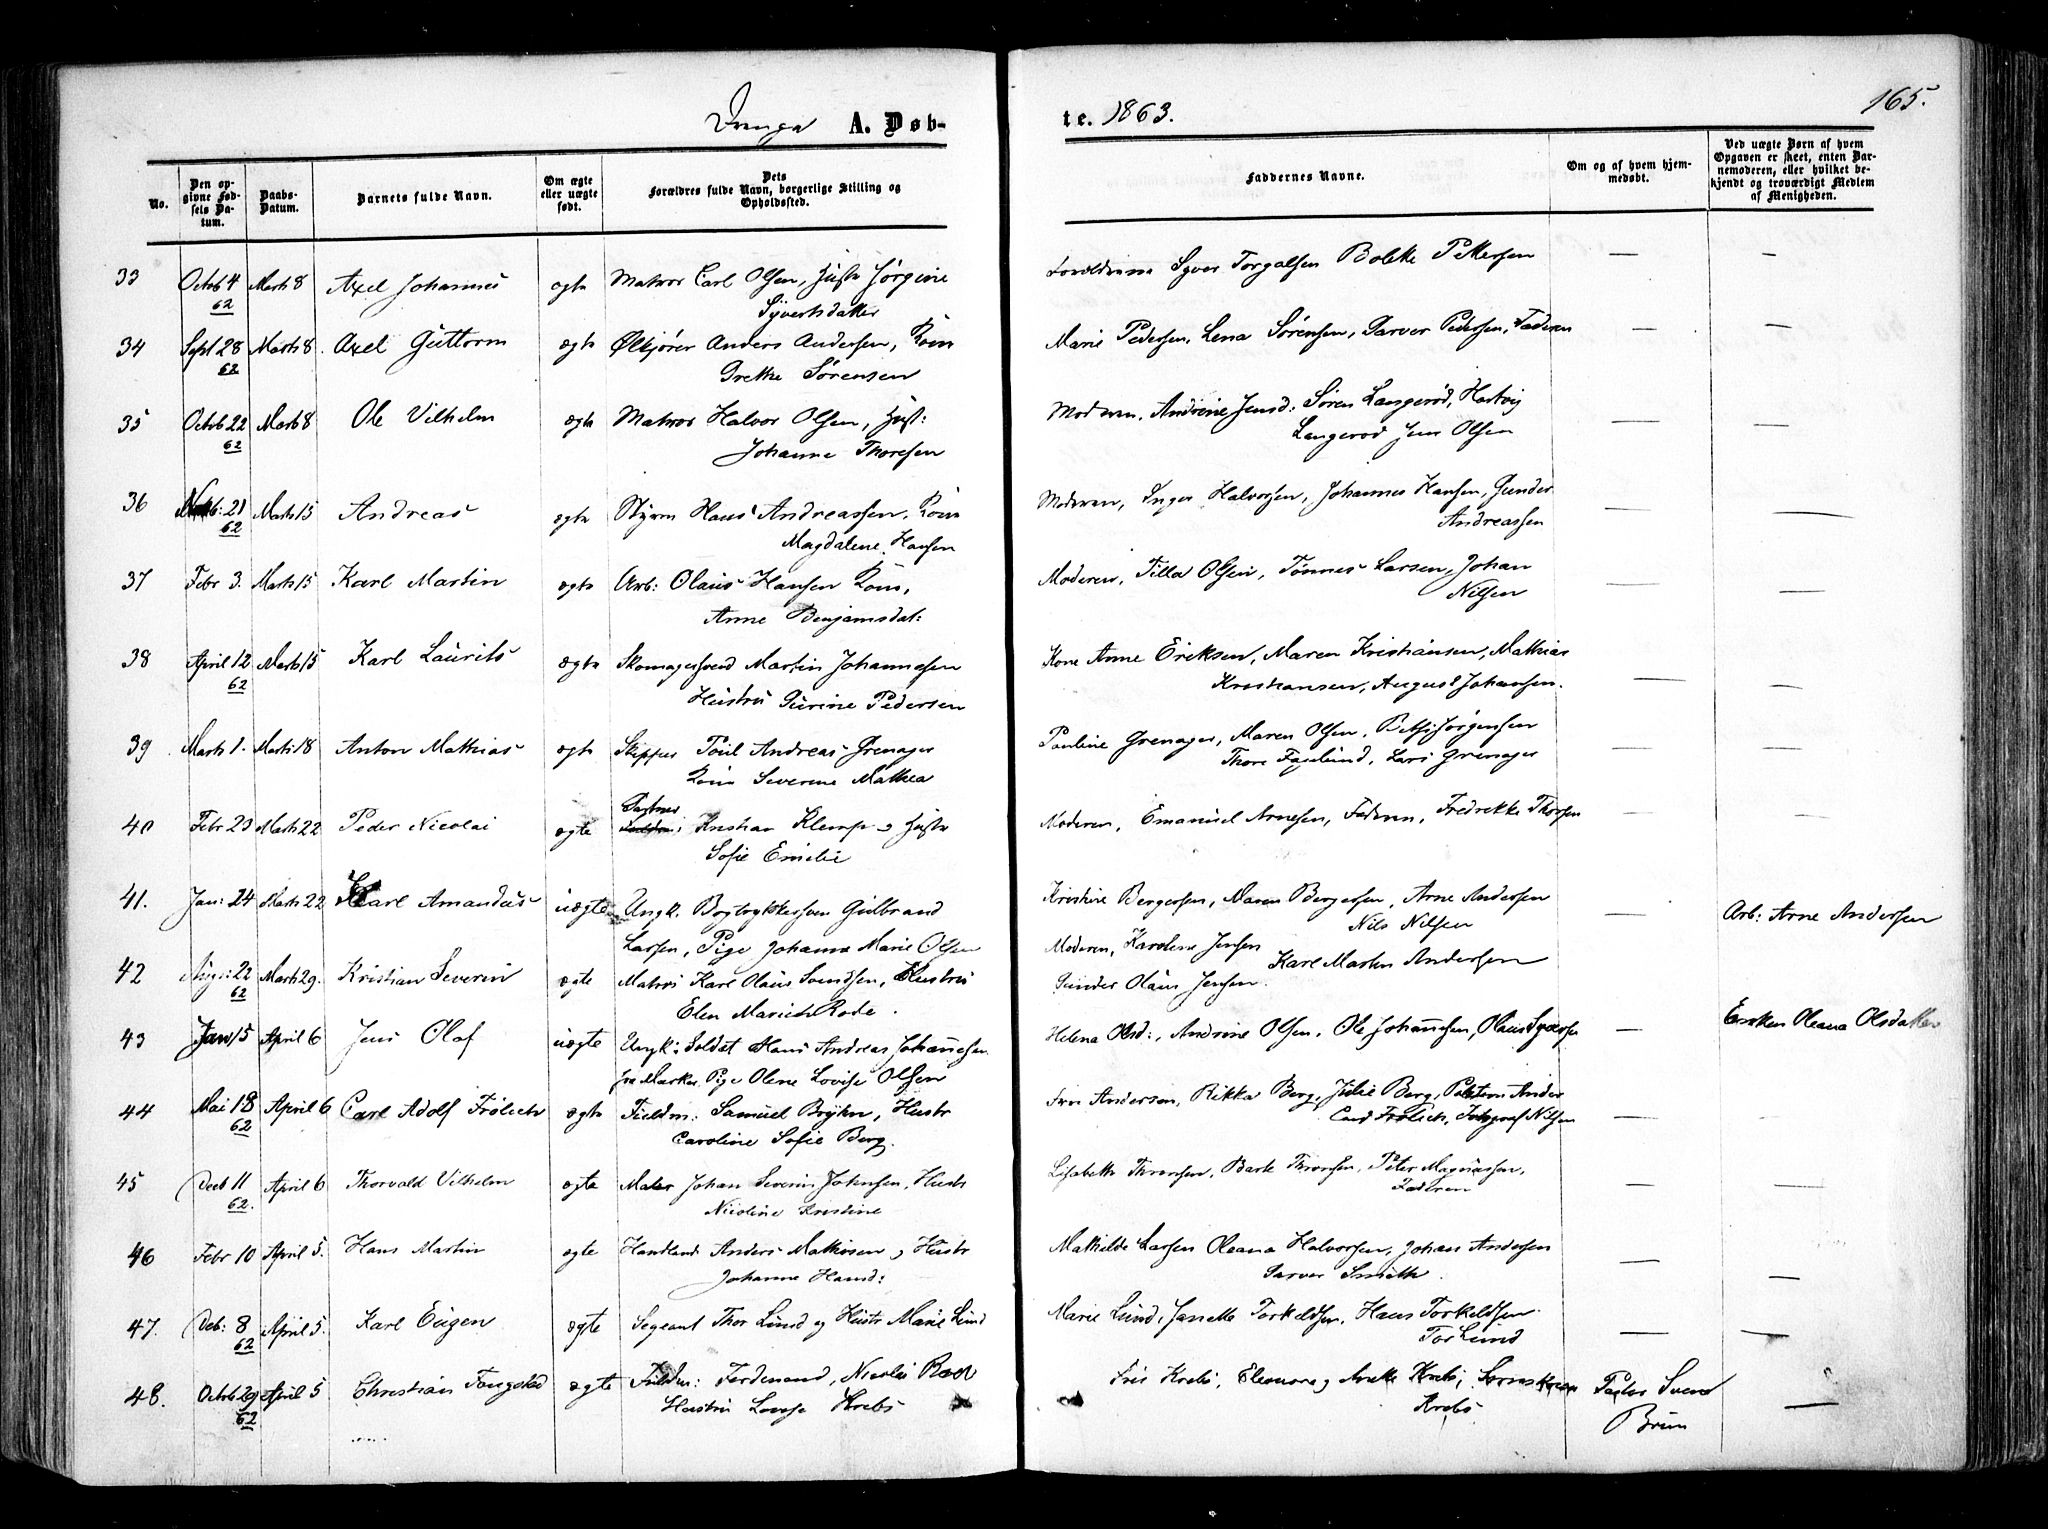 A. Døb-
te. 1863.
165.
No.
Den opgivne Fødsels Datum.
Daabs-Datum.
Barnets fulde Navn.
Om ægte eller uægte født.
Dets Forældres fulde Navn, borgerlige Stilling og Opholdssted.
Faddernes Navne.
Om og af hvem hjemmedøbt.
Ved uægte Børn af hvem Opgaven er skeet, enten Barnemoderen, eller hvilket bekjendt og troværdigt Medlem af Menigheden.
33 Octob 4 62 Marts 8 Axel Johannes ægte Matros Carl Olsen, Hustr Jørgine Syvertsdatter
Syver Torgalsen Pettersen — —
34 Sept 28 62 Marts 8. Axel Guttorm ægte Anders Andersen, Kone Grethe Sørensen
Marie Pedersen, Lena Sørensen, Sarver Pedersen, Faderen — —
35 Octob 22 62 Marts 8 Ole Vilhelm ægte Matros Halvor Olsen, Hust: Johanne Thoresen
Moderen, Andrine Jensd: Søren Langerød, Hartvig Langerød Jens Olsen — —
36 21 62 Marts 15 Andreas ægte Styrm Hans Andreassen, Kone Magdalene Hansen
Moderen, Inger Halvorsen, Johannes Hansen, Gunder Andreassen — —
37 Febr 3. Marts 15 Karl Martin ægte Arb: Olaus Hansen Kone, Anne Benjamsdat:
Moderen, Tilla Olsen, Tønnes Larsen, Johan Nilsen — —
38 April 12 62 Marts 15 Karl Laurits ægte Skomagersvend Martin Johannesen Hustru Gurine Pedersen
Kone Anne Eriksen, Maren Kristiansen, Mathias Kristiansen, August Johansen. — —
39 Marts 1. Marts 18 Anton Mathias ægte Skipper Poul Andreas Grenager Kone Severine Mathea
Pauline Grenager, Maren Olsen, Betsi Jørgensen Thore Fagelund, Lars Grenager — —
40 Febr 23 Marts 22 Peder Nicolai ægte Kristian Klemp og Hustr Sofie Emelie
Moderen, Emanuel Arnesen, Faderen, Fredrikke Thorsen — —
41. Jan: 24 Marts 22 Karl Amandus uægte Ungk. Bogtrykkersven Gulbrand Larsen, Pige Johanne Marie Olsen
Kristine Bergersen, Maren Bergersen, Arne Andersen Nils Nilsen — Arb: Arne Andersen
42 Aug: 22 62 Marts 29. Kristian Severin ægte Matros Karl Olaus Svendsen, Hustru Elen Marie Rode.
Moderen, Karoline Jensen Karl Martin Andersen Gunder Olaus Jensen.
43 Jan 15 April 6 Jens Olaf uægte Ungk: Soldat Hans Andreas Johannesen fra Marker, Pige Olene Lovise Olsen
Helena Olsd:, Andrine Olsen, Ole Johannesen, Olaus Syversen — Enken Oleana Olsdatter
44 Mai 18 62 April 6 Carl Adolf Frølich ægte Fuldm: Samuel Bryhn, Hustr Caroline Sofie Berg.
Fru Andersen, Rikka Berg, Julie Berg, Carl Frølich, Fotograf Nilsen — —
45 Decb 11 62. April 6 Thorvald Vilhelm ægte Maler Johan Severin Johnsen, Hustr Nicoline Kristine
Lisabeth Thronsen, Thronsen, Peter Magnussen, Faderen — —
46 Febr 10 April 5. Hans Martin ægte Handland Anders Mathisen og Hustr Johanne Hansd:
Mathilde Larsen Oleana Halvorsen, Johan Andersen Sarver Smith. — —
47. Deb: 8 62 April 5. Karl Eugen ægte Sergeant Thor Lund og Hustr Marie Lund
Marie Lund, Janette Torkeldsen, Hans Torkeldsen Tor Lund — —
48. Octob 29 62 April 5 Christian ægte Fuldm: Ferdinand, Nicolai Hustru Lovise Krebs
Krebs, Eleonore og Krebs, Krebs
Pastor Svend Brun —